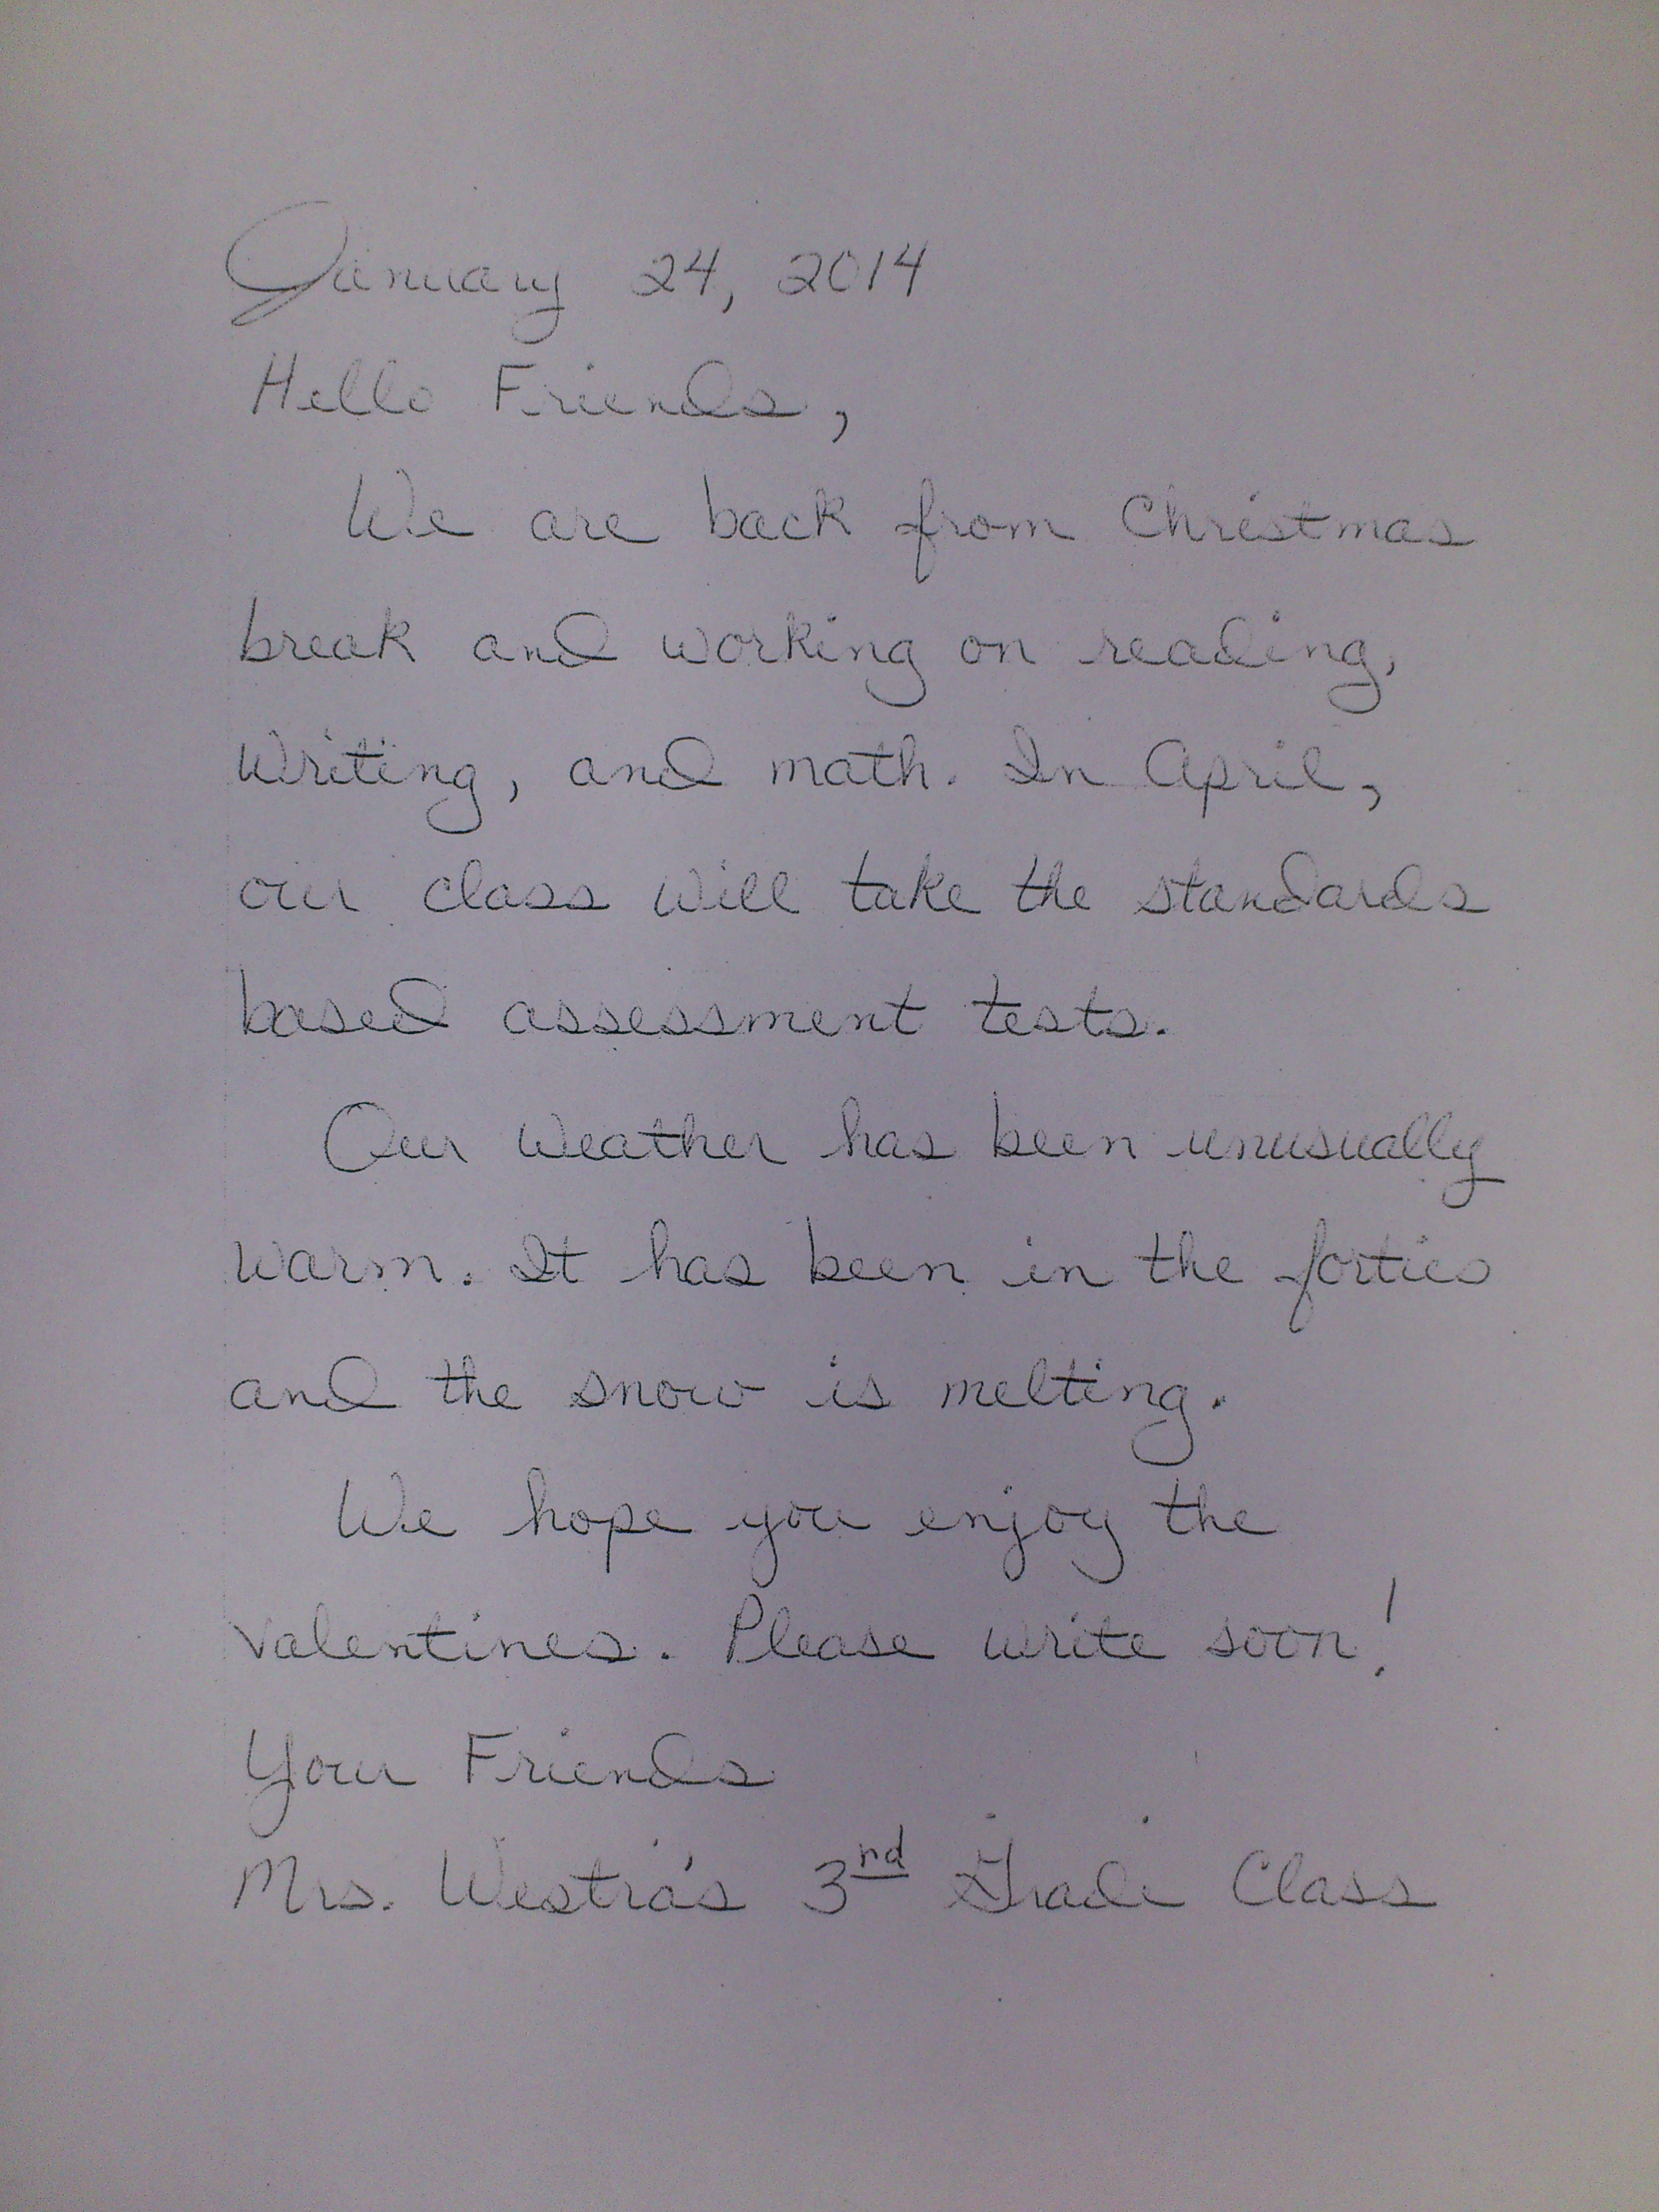 January 24, 2014
Hello Friends,
We are back from Christmas
break and working on reading,
writing, and math. In April,
our class will take the standards
based assessment tests.
Our weather has been unusually
warm. It has been in the forties
and the snow is melting.
We hope you enjoy the
valentines. Please write soon!
Your Friends
Mrs. Westra's 3nd Grade Class